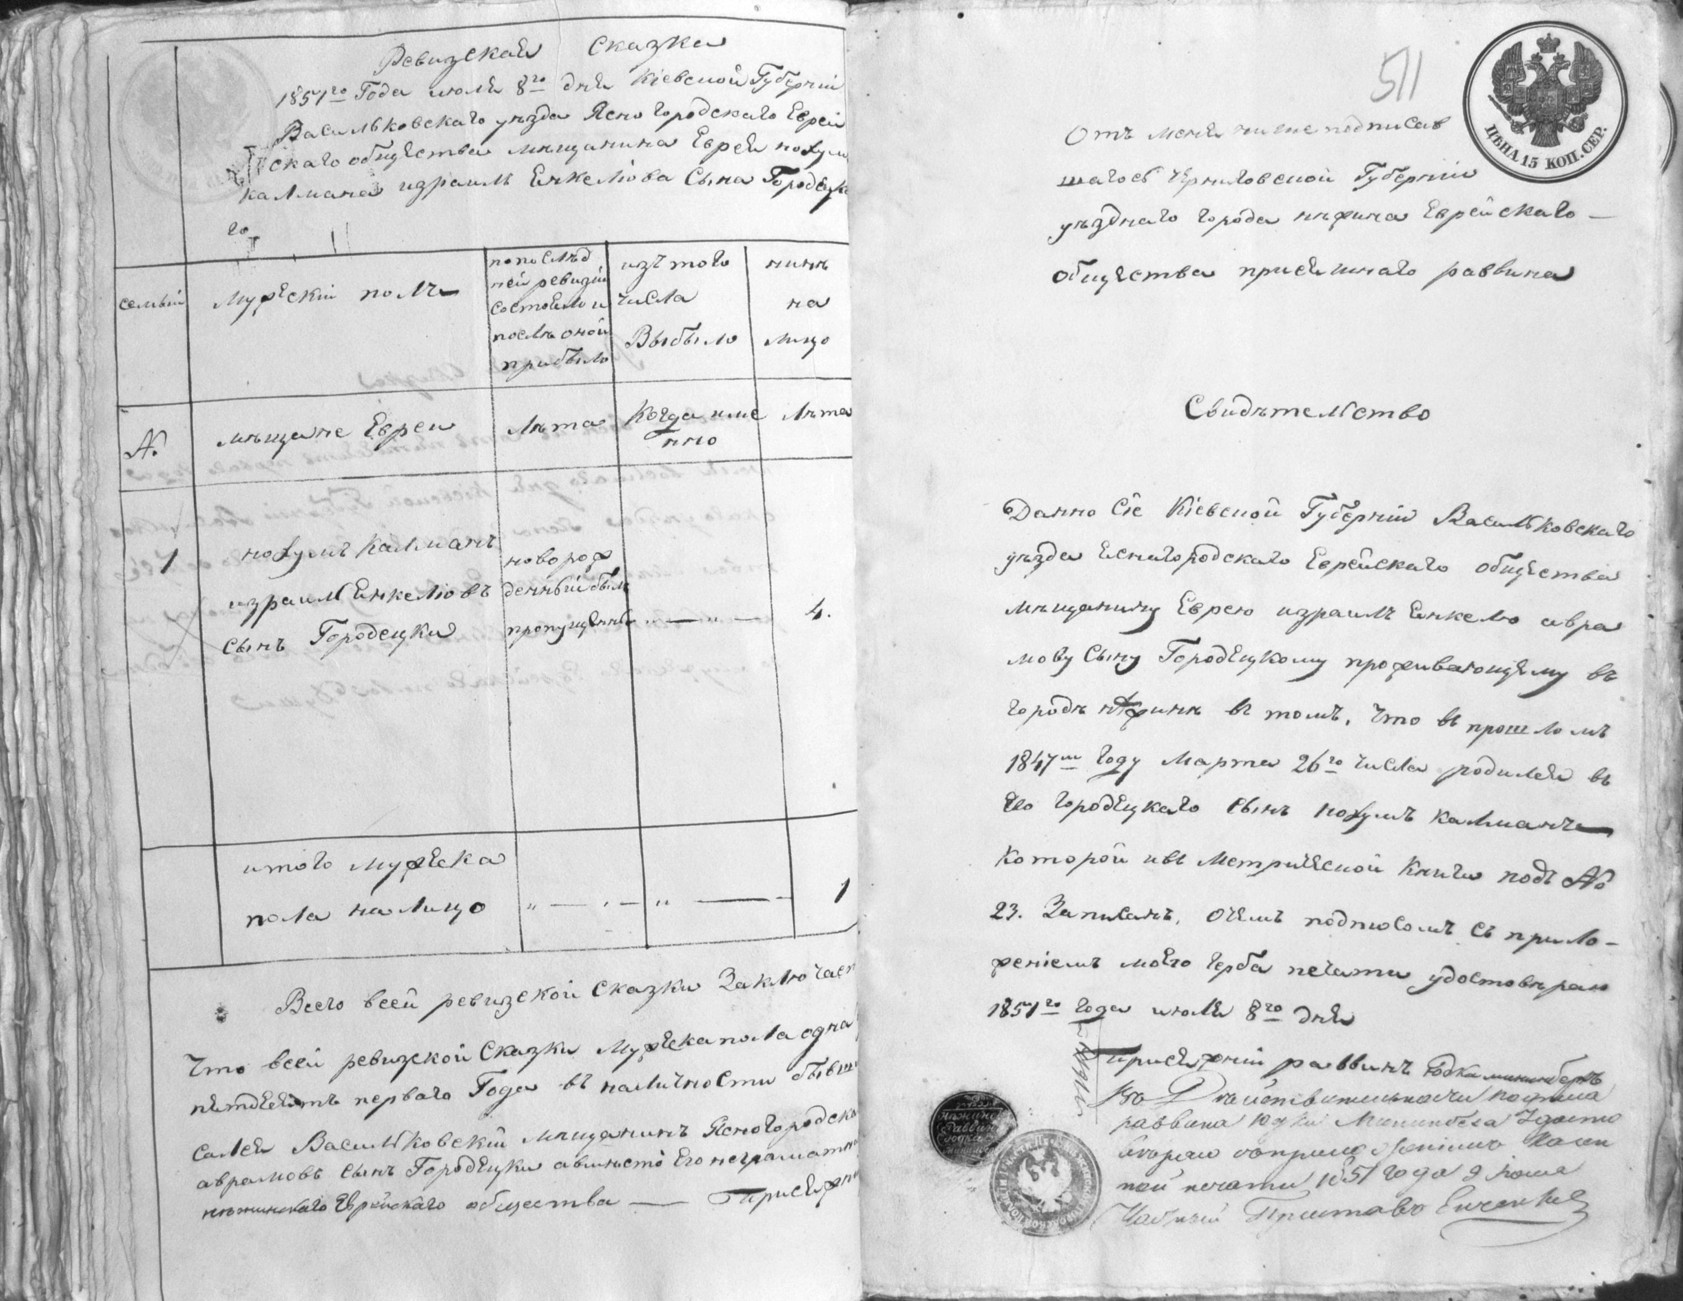 Ревизская Сказка
1851го Года июля 8го дня Кіевской Губерніи
Васильковскаго уезда Ясногородскаго Еврей
скаго общества мещанина Еврея нохум
калмана израиль Енкелюва Сына Городецка
го
семьи
Мужескій полъ
по послѣд
ней ревизіи
состояло и
послѣ оной
прибыло
изъ того
числа
Выбыло
нынѣ
на
лицо
№.
мѣщане Евреи
Лѣта
Когда име
нно
Лѣта
1
нохумъ Калманъ
израил Енкелювъ
сынъ Городецки
новорож
денный былъ
пропущенъ
4.
итого мужеска
пола на лицо
1
Всего всей ревизской сказки Заключает
Что всей ревизской Сказки Мужеска пола одна
пятдесятъ перваго Года въ наличности бывш
Васильковскій мещанинъ Ясногородска
аврамовъ сынъ Городецки авместо Его неграматн
нежинскаго Еврейскаго общества — Присяжн
511
ЦѢНА 15 КОП. СЕР.
Отъ меня ниже подписав
шагось Черниговской Губерніи
уѣзднаго города нѣжина Еврейскаго —
общества присяжнаго раввина
Свидѣтелство
Данно Сіе Кіевской Губерніи Васильковскаго
уѣзда Еснагородскаго Еврейскаго общества
мѣщанину Еврею израиль Енкелю авра
мову Сыну Городецкому проживающему въ
городѣ нѣжинѣ въ томъ, Что въ прошломъ
1847м Году Марта 26го числа родился въ
Его Городецкаго сынъ нохумъ калманъ
Которой ивъ Метрической Книги подъ №
23. Записанъ. Очемъ подписомъ съ прило-
женіемъ моего герба печати удостовѣраю
1851го года июля 8го дня
Присяжній раввинъ Юдка мининбергъ
Что Действительности подписа
раввина Юдки Удосто
веряю
ной печати 1851 года 9 июля
Частный Приставъ